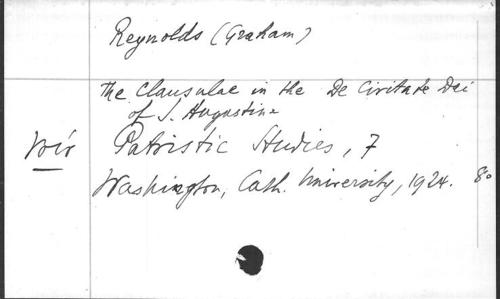 Reynolds (Graham)
The Clausulae in the De Civitate Dei
of S. Augustine
voir Patristic Studies, 7
Washington, Cath. University, 1924. 8o